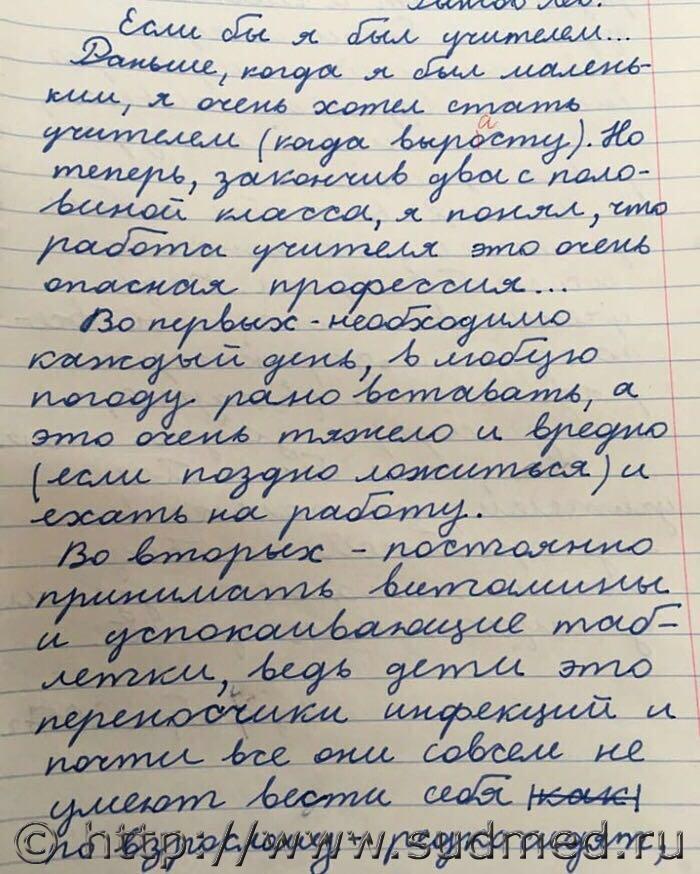 Если бы я был учителем...
Раньше, когда я был малень-
ким, я очень хотел стать
а
учителем (когда выросту). Но
теперь, закончив два с поло-
виной класса, я понял, что
работа учителя это очень
опасная профессия...
Во первых - необходимо
каждый день, в любую
погоду рано вставать, а
это очень тяжело и вредно
(если поздно ложиться) и
ехать на работу.
Во вторых - постоянно
принимать витамины
и успокаивающие таб-
летки, ведь дети это
переносчики инфекций и
почти все они совсем не
умеют вести себя как
по взрослому -
© http://www.sudmed.ru